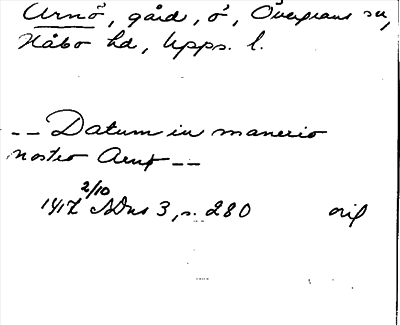 Arnö, gård, ö, Övergrans sn,
Håbo hd, Upps. l.
-- Datum in manerio
nostro Arnø --
1417 2/10 SDns 3, s. 280 orig